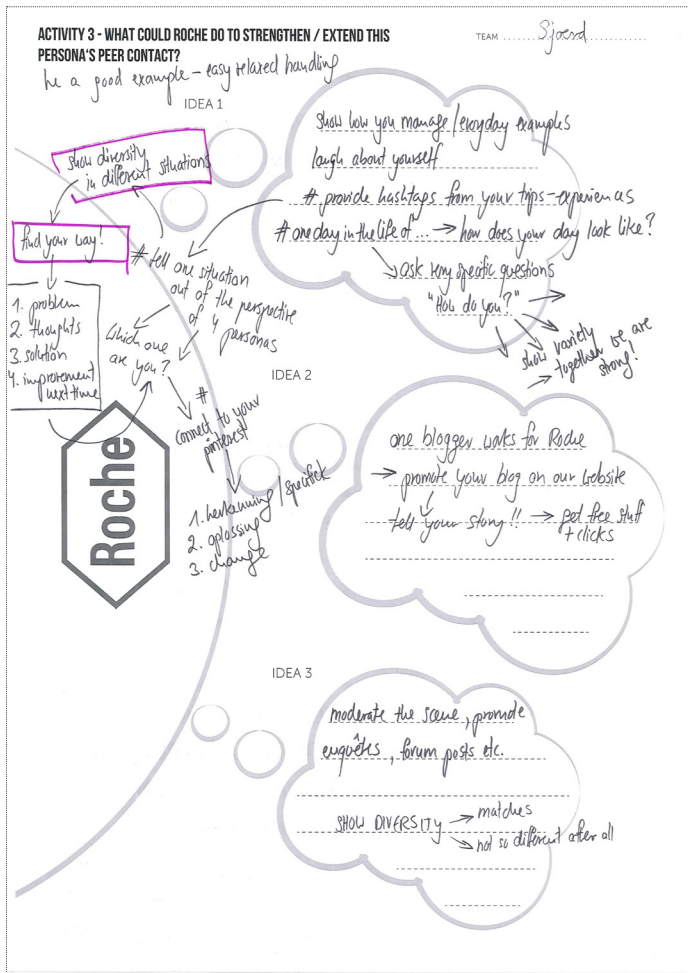 ACTIVITY 3 - WHAT COULD ROCHE DO TO STRENGTHEN / EXTEND THIS
PERSONA'S PEER CONTACT?
TEAM Sjoerd
be a good example - easy relaxed handling
IDEA 1
show how you manage / everyday examples
laugh about yourself
# provide hashtags from your trips - experiences
# one day in the life of ... → how does your day look like?
ask very specific questions
"How do you?"
show variety
together we are
strong!
show diversity
in different situations
find your way!
1. problem
2. thoughts
3. solution
4. improvement
next time
# tell one situation
out of the perspective
of 4 personas
Which one
are you?
#
connect to your
pinterest
1. herkenning / specifiek
2. oplossing
3. change
Roche
IDEA 2
one blogger works for Roche
→ promote your blog on our website
tell your story!! → get free stuff
+ clicks
IDEA 3
moderate the scene, promote
enquêtes, forum posts etc.
SHOW DIVERSITY → matches
→ not so different after all